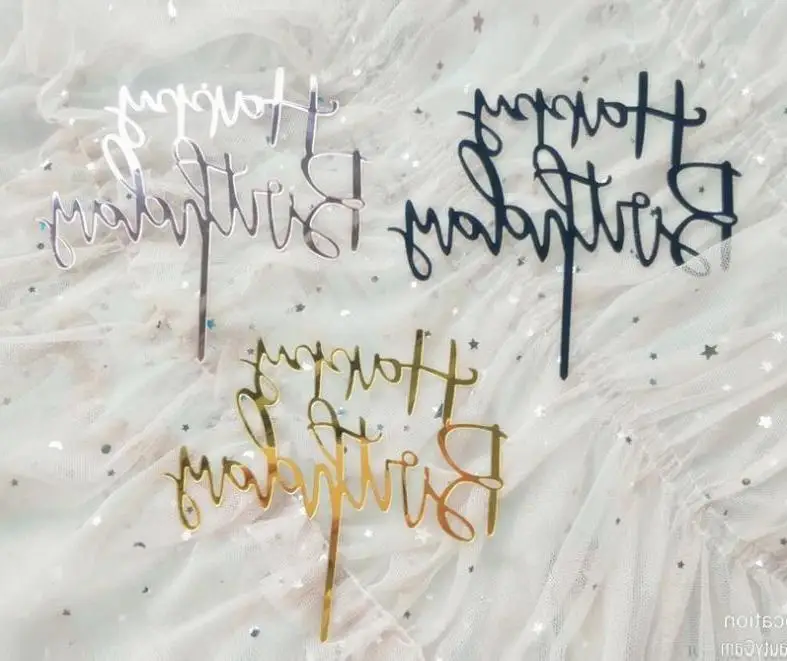 Happy
Birthday
Happy
Birthday
Happy
Birthday
ocation
autyCam